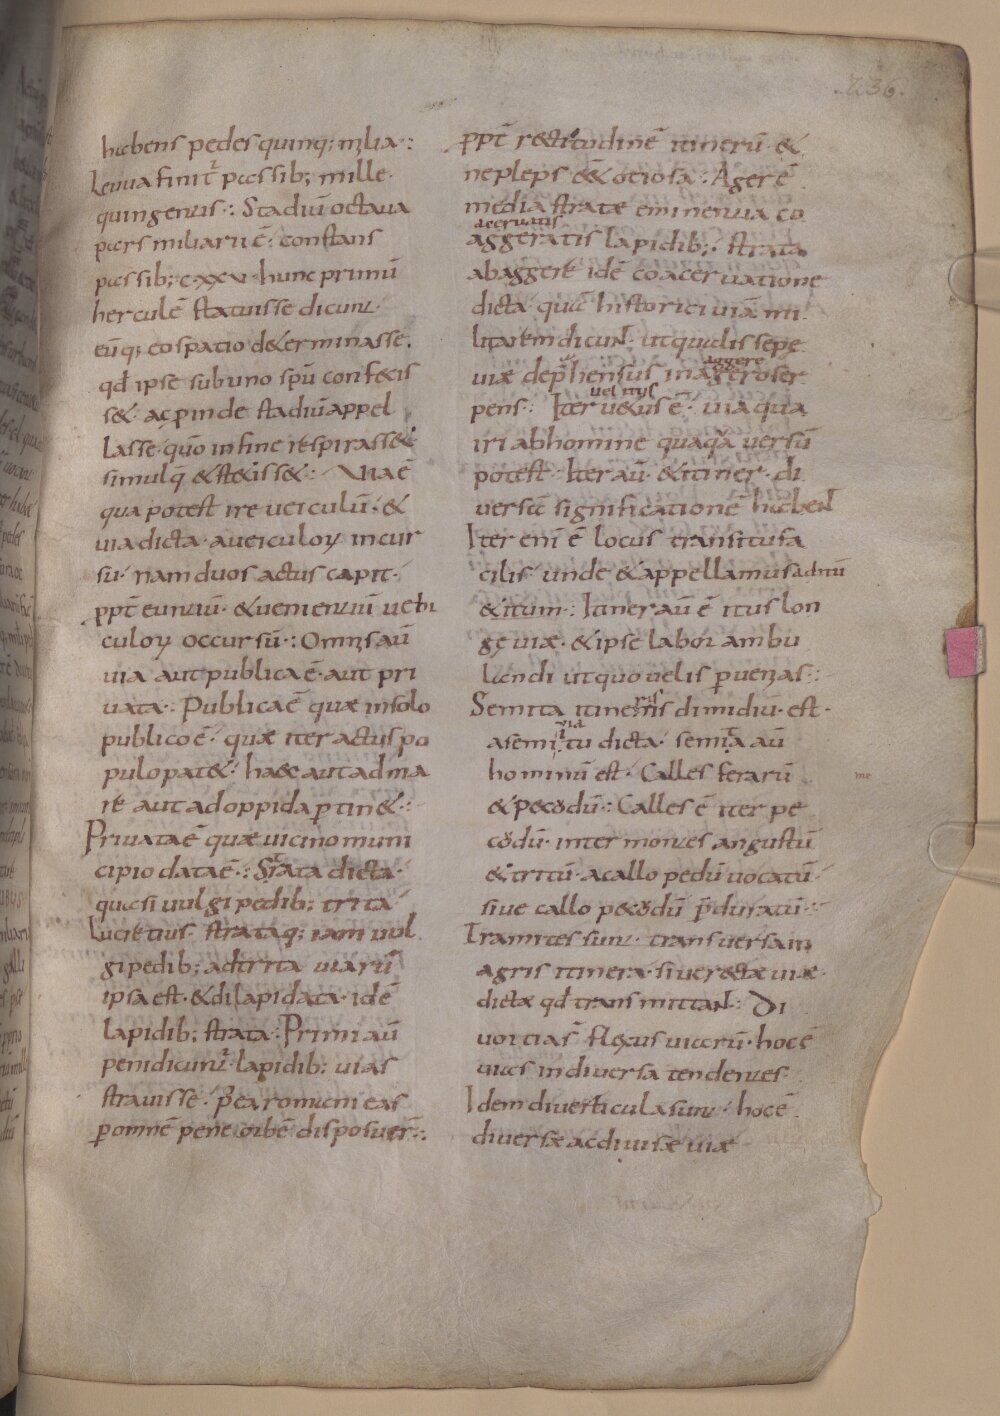 .236.
habens pedes quinq; milia:
Leuua finit̄ passib; mille
quingentis:. Stadiū octaua
pars miliarii ē· constans
passib; cxxv· hunc primū
herculē statuisse dicunt·
eūq; eo spatio determinasse.
qđ ipse sub uno spū confecis
s&· ac pinde stadiū appel
lasse· quō in fine respirass&
simulq̄ & stetiss&:· Via ē
qua potest ire ueiculū· &
uia dicta· aueiculoꝝ incur
su· nam duos actus capit·
ꝓpt̄ euntiū· & uenientiū uehi
culoꝝ occursū:· Omnis aū
uia aut publica ē· aut pri
uata:· Publica ē quæ in solo
publico ē· quæ iter actus po
pulo pat&· haec aut ad ma
re aut ad oppida ꝑtin&:·
Priuata ē quæ uicino muni
cipio data ē:· Strata dicta·
quasi uulgi pedib; trita
Lucretius· strataq; iam uul
gi pedib; adtrita uiarū
ipsa est· & dilapidata· idē
lapidib; strata· Primi aū
penidicunt̄· lapidib; uias
strauisse· P̄ea romani eas
ꝑomnē pene orbē disposuer̄:·
ꝓpt̄ rectitudinē itinerū· &
ne pleps ēet ociosa:· Ager ē
media stratæ eminentia co
aceruatis
aggeratis lapidib;· strata
abaggere idē coaceruatione
dicta quā historici uiā mi
litarem dicunt̄· ut qualis sepe
aggere
uiæ dep̄hensus in agrroser
uel itus
pens:· Iter uel itus ē· uia qua
iri abhomine quaqā uersū
potest· Iter aū· & itiner· di
uersā significationē habent̄
Iter enī ē locus transitu fa
cilis· unde & appellamus aditū
& itum:· Itiner aū ē itus lon
gę uiæ· & ipse labor ambu
landi ut quo uelis ꝑuenias:·
ris
Semita itineris dimidiū· est·
via
asemitu dicta· semita aū
hominū est· Calles ferarū
me
& pecodū:· Calles ē iter pe
codū· inter montes angustū
& tritū· acallo pedū uocatū·
siue callo pecodū p̄duratū:·
Tramites sunt· transuersa in
agris itinera· siue rectæ uiæ·
dictæ qđ transmittant̄:· Di
uortia s̄ flexus uiarū· hoc ē
uias in diuersa tendentes·
Idem diuerticula sunt· hoc ē
diuersæ ac diuisæ uiæ